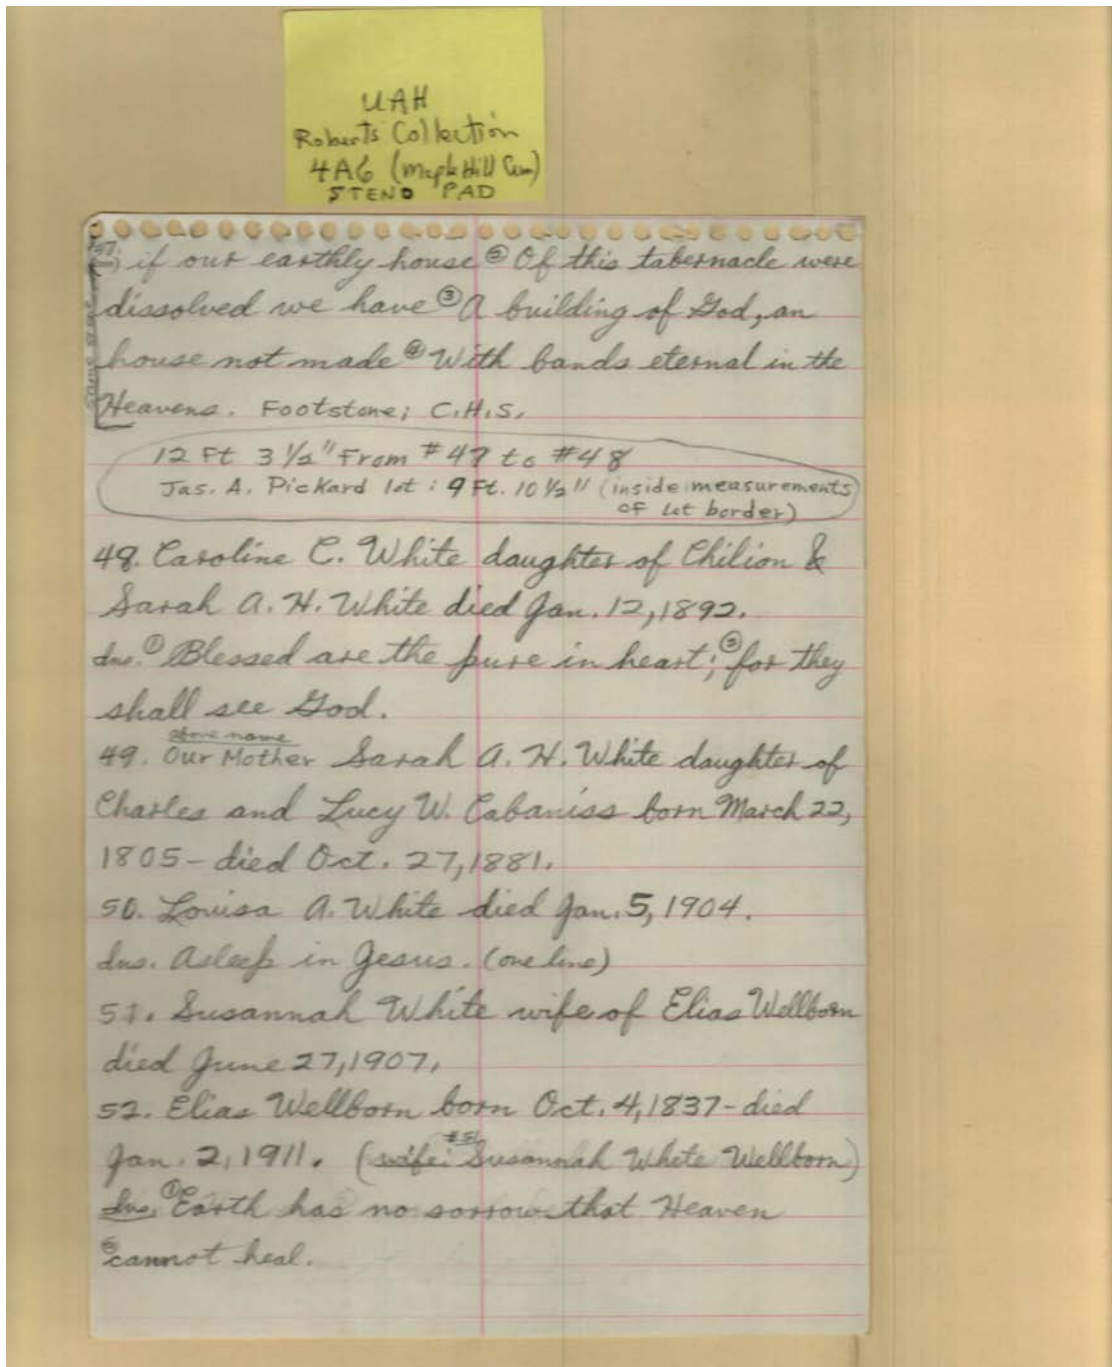 UAH
Roberts Collection
4A6 (Maple Hill Cem)
STENO PAD
if our earthly house ② Of this tabernacle were
dissolved we have ③ A building of God, an
house not made ④ With hands eternal in the
Heavens. Footstone; C.H.S.
12 Ft 3 1/2" From #47 to #48
Jas. A. Pickard lot: 9 Ft. 10 1/2" (inside measurements
of lot border)
48. Caroline C. White daughter of Chilion &
Sarah A. H. White died Jan. 12, 1892.
Ins. ① Blessed are the pure in heart; ② for they
shall see God.
above name
49. Our Mother Sarah A. H. White daughter of
Charles and Lucy W. Cabaniss born March 22,
1805 - died Oct. 27, 1881.
50. Louisa A. White died Jan. 5, 1904.
Ins. Asleep in Jesus. (one line)
51. Susannah White wife of Elias Wellborn
died June 27, 1907.
52. Elias Wellborn born Oct. 4, 1837 - died
#51
Jan. 2, 1911. (wife: Susannah White Wellborn)
Ins. ① Earth has no sorrow that Heaven
② cannot heal.